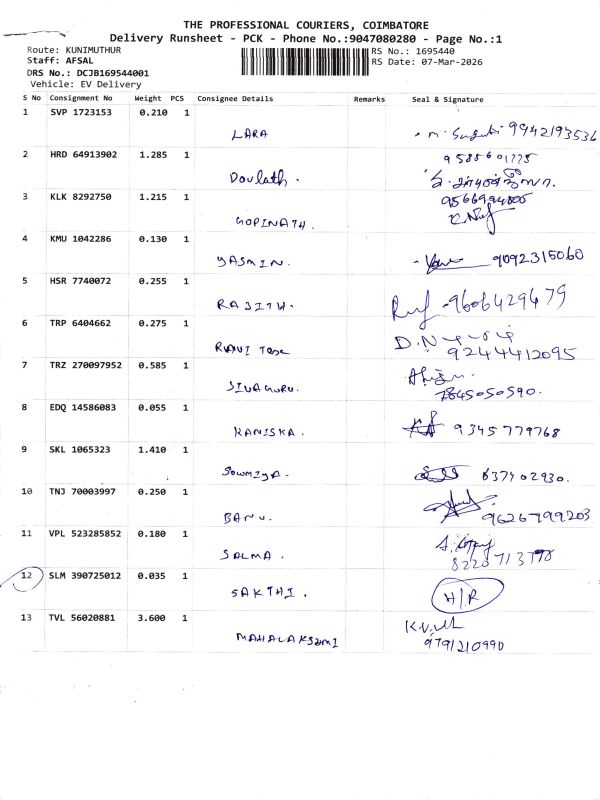 THE PROFESSIONAL COURIERS, COIMBATORE
Delivery Runsheet - PCK - Phone No.:9047080280 - Page No.:1
Route: KUNIMUTHUR
Staff: AFSAL
DRS No.: DCJB169544001
Vehicle: EV Delivery
RS No.: 1695440
RS Date: 07-Mar-2026
S No Consignment No Weight PCS Consignee Details Remarks Seal & Signature
1 SVP 1723153 0.210 1
LARA 9942193536
2 HRD 64913902 1.285 1
Doulath.
3 KLK 8292750 1.215 1
GOPINATH.
4 KMU 1042286 0.130 1
YASMIN. 9092315060
5 HSR 7740072 0.255 1
RAJITH. 9606429679
6 TRP 6404662 0.275 1
RAVI D.N
9244412095
7 TRZ 270097952 0.585 1
SIVAGURU.
7845050590.
8 EDQ 14586083 0.055 1
KANISKA. 9345779768
9 SKL 1065323 1.410 1
SOWMIYA. 637402930.
10 TNJ 70003997 0.250 1
BANU. 9626799203
11 VPL 523285852 0.180 1
SALMA.
12 SLM 390725012 0.035 1
SAKTHI. H/R
13 TVL 56020881 3.600 1
MAHALAKSHMI
9791210990